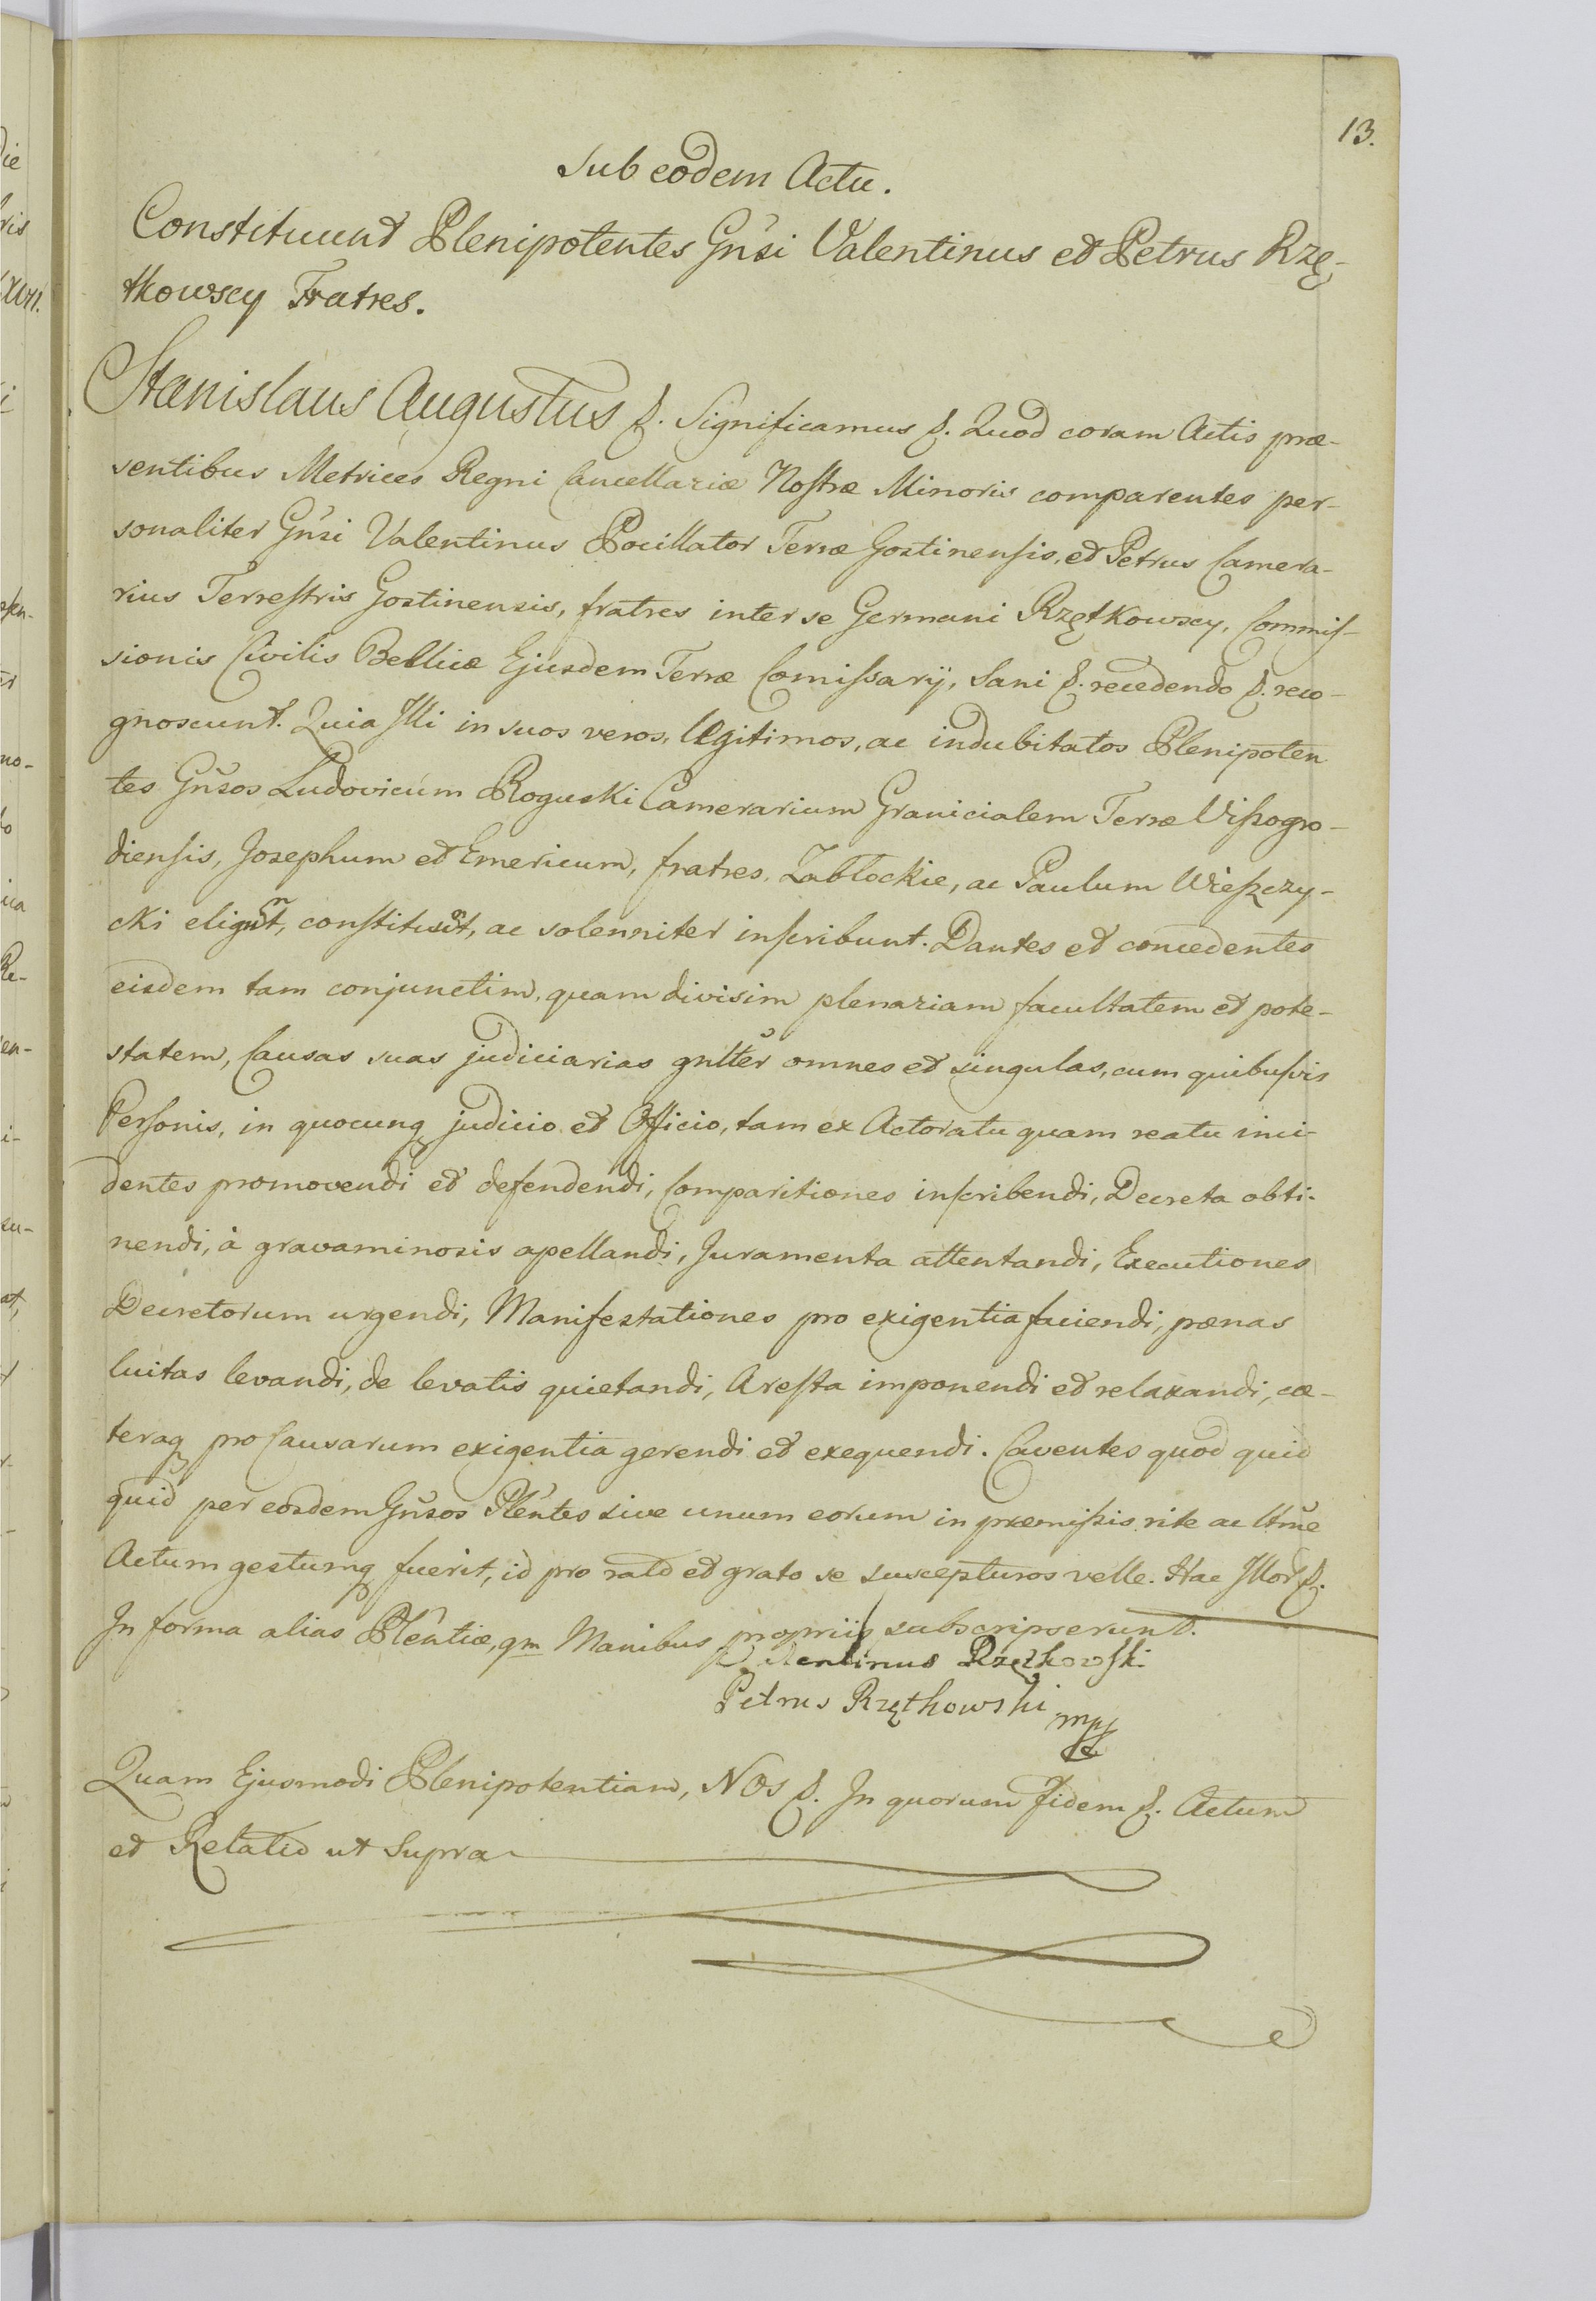 13.
Sub eodem Actu.
Constituunt Plenipotentes Gnsi Valentinus et Petrus Rzę-
tkowscy Fratres.
Stanislaus Augustus &. Significamus &. Quod coram Actis præ-
sentibus Metrices Regni Cancellariæ Nostræ Minoris comparentes per-
sonaliter Gnsi Valentinus Pocillator Terræ Gostinensis, et Petrus Camera-
rius Terrestris Gostinensis, fratres inter se Germani Rzętkowscy, Commis-
sionis Civilis Bellicæ Ejusdem Terræ Comissarij, Sani &. recedendo &. reco-
gnoscunt. Quia Illi in suos veros, legitimos, ac indubitatos Plenipoten
tes Gnsos Ludovicum Roguski Camerarium Granicialem Terræ Vissogro-
diensis, Josephum et Emericum, fratres Zabłockie, ac Paulum Wieszczy-
cki eligunt, constituunt, ac solenniter inscribunt. Dantes et concedentes
eisdem tam conjunctim, quam divisim plenariam facultatem et pote-
statem, Causas suas judiciarias gnlter omnes et singulas, cum quibusvis
Personis, in quocunq judicio et Officio, tam ex Actoratu quam reatu inci-
dentes promovendi et defendendi, Comparitiones inscribendi, Decreta obti-
nendi, à gravaminosis apellandi, Juramenta attentandi, Executiones
Decretorum urgendi, Manifestationes pro exigentia faciendi, pænas
luitas levandi, de levatis quietandi, Aresta imponendi et relaxandi, cæ-
teraq pro Causarum exigentia gerendi et exequendi. Caventes quod quid
quid per eosdem Gnsos Plentes sive unum eorum in præmissis rite ac ltme
Actum gestumq fuerit, id pro rato et grato se suscepturos velle. Hac Illor &.
In forma alias Plentiæ, qm Manibus propriis subscripserunt.
Valentinus Rzętkowski
Petrus Rzętkowski mp
Quam Ejusmodi Plenipotentiam, NOs &. In quorum fidem &. Actum
et Relatio ut Supra